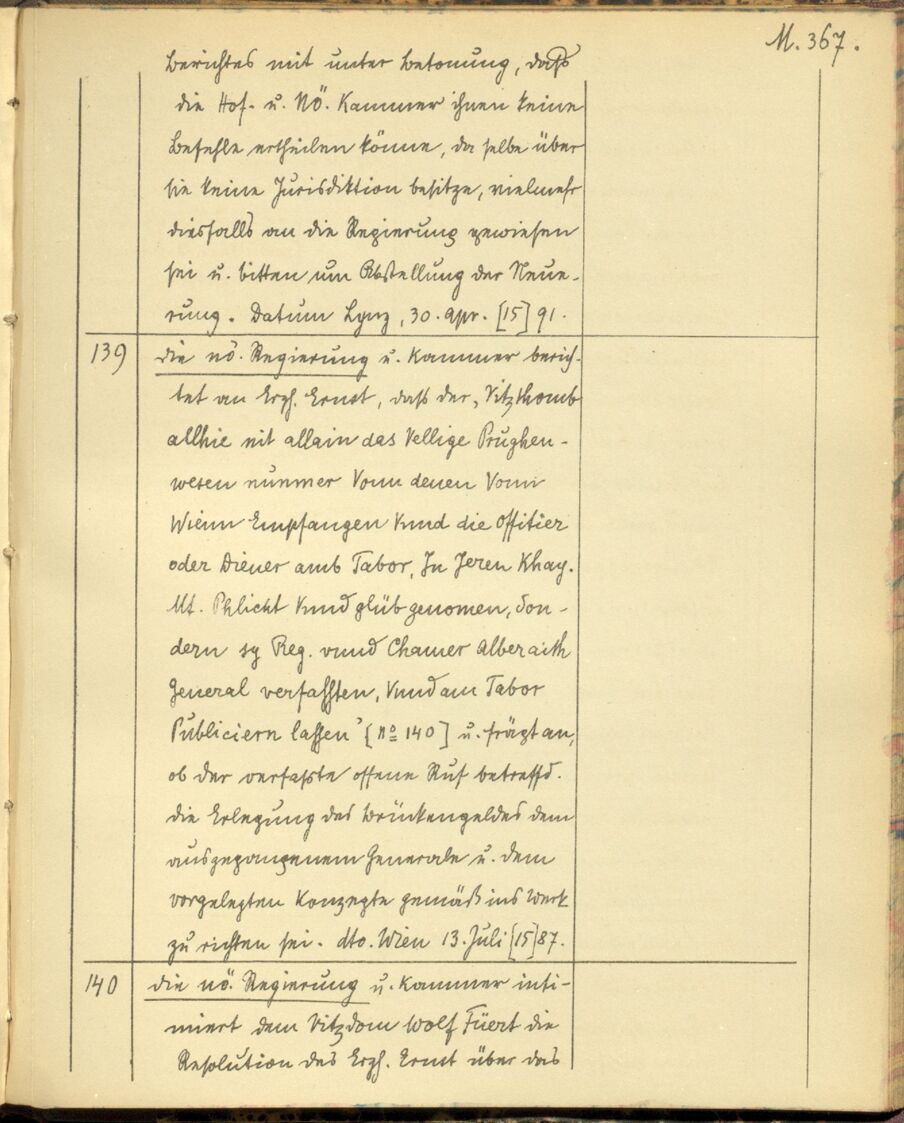 M. 367.
Berichtes mit unter Betonung, daß
die Hof- u. NÖ. Kammer ihnen keine
Befehle ertheilen könne, da selbe über
sie keine Jurisdiktion besitze, vielmehr
diesfalls an die Regierung gewiesen
sei u. bitten um Abstellung der Neue-
rung. Datum Lynz, 30. Apr. [15]91.
139 die nö. Regierung u. Kammer berich-
tet an Erzh. Ernst, daß der „Vitzthomb
allhie nit allain das Vellige Prughen-
wesen nunmer Vonn denen Vonn
Wienn Empfangen Vnnd die Offitier
oder Diener amb Tabor, In Jeren Khay.
Mt. Phlicht Vnnd glüb genomen, Son-
dern sy Reg. vnnd Chamer Alberaith
General verfassten, Vnnd am Tabor
Publiciern lassen" [No 140] u. frägt an,
ob der verfaßte offene Ruf betreffd.
die Erlegung des Brückengeldes dem
ausgegangenem Generale u. dem
vorgelegten Konzepte gemäß ins Werk
zu richten sei. dto. Wien 13. Juli [15]87.
140 die nö. Regierung u. Kammer inti-
miert dem Vitzdom Wolf Füert die
Resolution des Erzh. Ernst über das